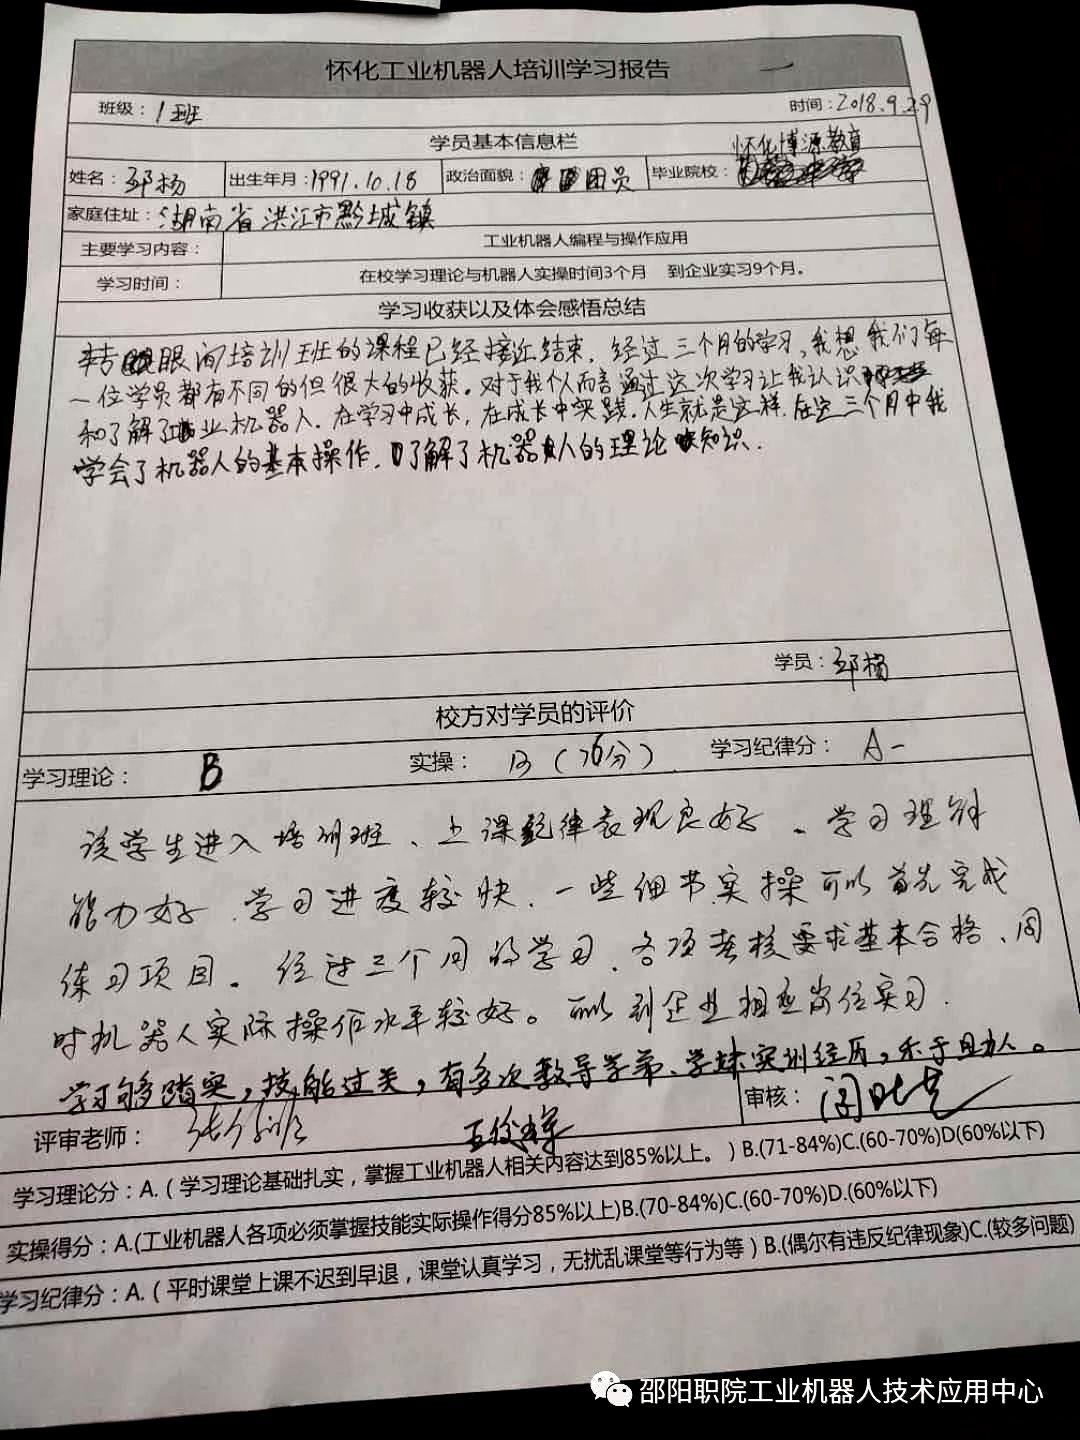 怀化工业机器人培训学习报告 一
班级：1班 时间：2018.9.29
学员基本信息栏
怀化博源教育
姓名：邱杨 出生年月：1991.10.18 政治面貌：团员 毕业院校：
家庭住址：湖南省洪江市黔城镇
主要学习内容： 工业机器人编程与操作应用
学习时间： 在校学习理论与机器人实操时间3个月 到企业实习9个月。
学习收获以及体会感悟总结
转眼间培训班的课程已经接近结束，经过三个月的学习，我想我们每
一位学员都有不同的但很大的收获。对于我个人而言通过这次学习让我认识
和了解了工业机器人．在学习中成长，在成长中实践．人生就是这样．在这三个月中我
学会了机器人的基本操作．了解了机器人的理论知识．
学员：邱杨
校方对学员的评价
学习理论： B 实操： B（76分） 学习纪律分： A-
该学生进入培训班、上课纪律表现良好。学习理解
能力好、学习进度较快、一些细节实操可以首先完成
练习项目。经过三个月的学习、各项考核要求基本合格、同
时机器人实际操作水平较好。可以到企业相应岗位实习．
学习够踏实，技能过关，有多次教导学弟、学妹实训经历，乐于助人。
评审老师： 审核：
学习理论分：A.（学习理论基础扎实，掌握工业机器人相关内容达到85%以上。）B.(71-84%)C.(60-70%)D(60%以下)
实操得分：A.(工业机器人各项必须掌握技能实际操作得分85%以上)B.(70-84%)C.(60-70%)D.(60%以下)
学习纪律分：A.（平时课堂上课不迟到早退，课堂认真学习，无扰乱课堂等行为等）B.(偶尔有违反纪律现象)C.(较多问题)
邵阳职院工业机器人技术应用中心